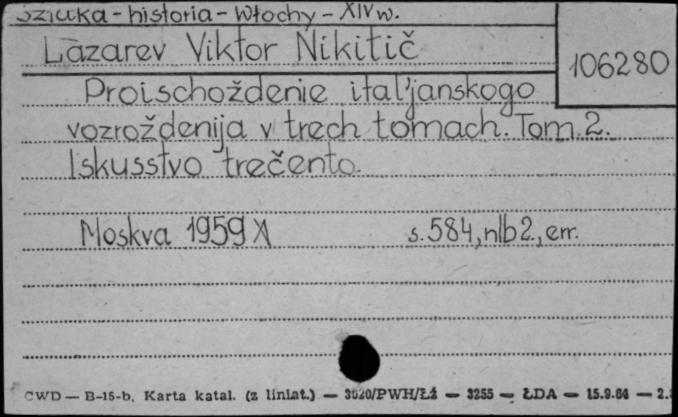 Sztuka - historia - Włochy - XIV w.
Lazarev Viktor Nikitič
106280
Proischoždenie ital'janskogo
vozroždenija v trech tomach. Tom 2.
Iskusstvo trečento.
Moskva 1959 s. 584, nlb 2, err.
CWD — B-15-b. Karta katal. (z liniat.) — 3020/PWH/Łź — 3255 — ŁDA — 15.9.64 —